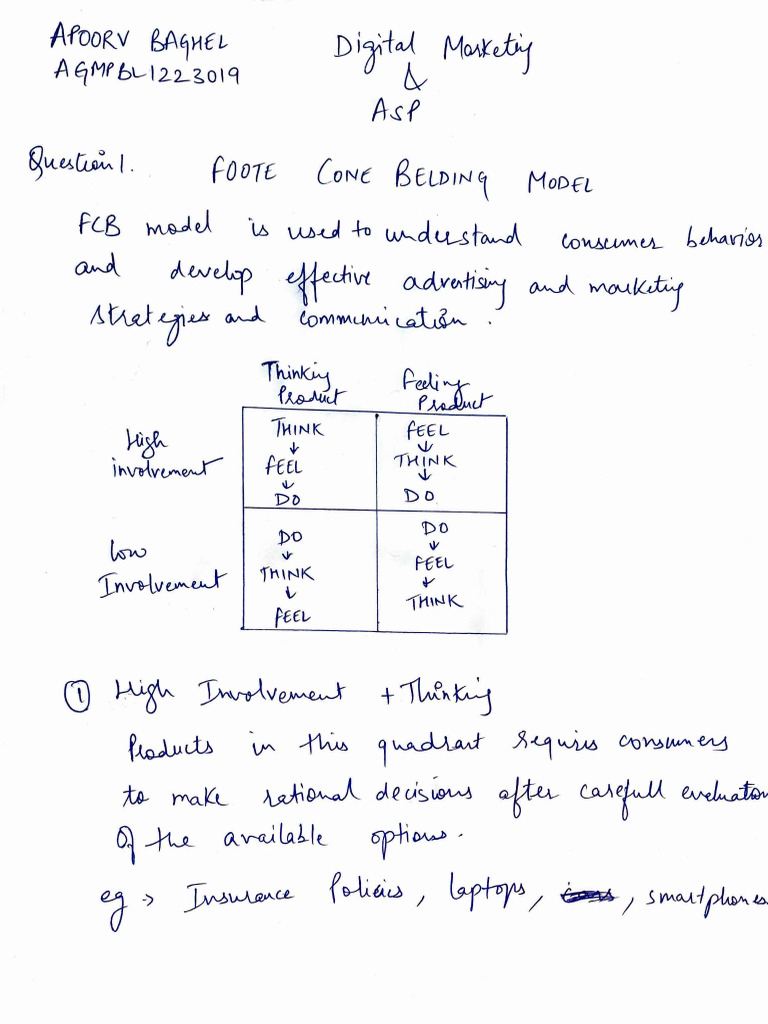 APOORV BAGHEL
AGMPBL1223019
Digital Marketing
&
ASP
Question 1. FOOTE CONE BELDING MODEL
FCB model is used to understand consumer behavior
and develop effective advertising and marketing
strategies and communication.
Thinking Product
Feeling Product
High involvement
THINK
↓
FEEL
↓
DO
FEEL
↓
THINK
↓
DO
Low Involvement
DO
↓
THINK
↓
FEEL
DO
↓
FEEL
↓
THINK
① High Involvement + Thinking
Products in this quadrant requires consumers
to make rational decisions after carefull evaluation
Of the available options.
eg → Insurance Policies, laptops, , smartphones